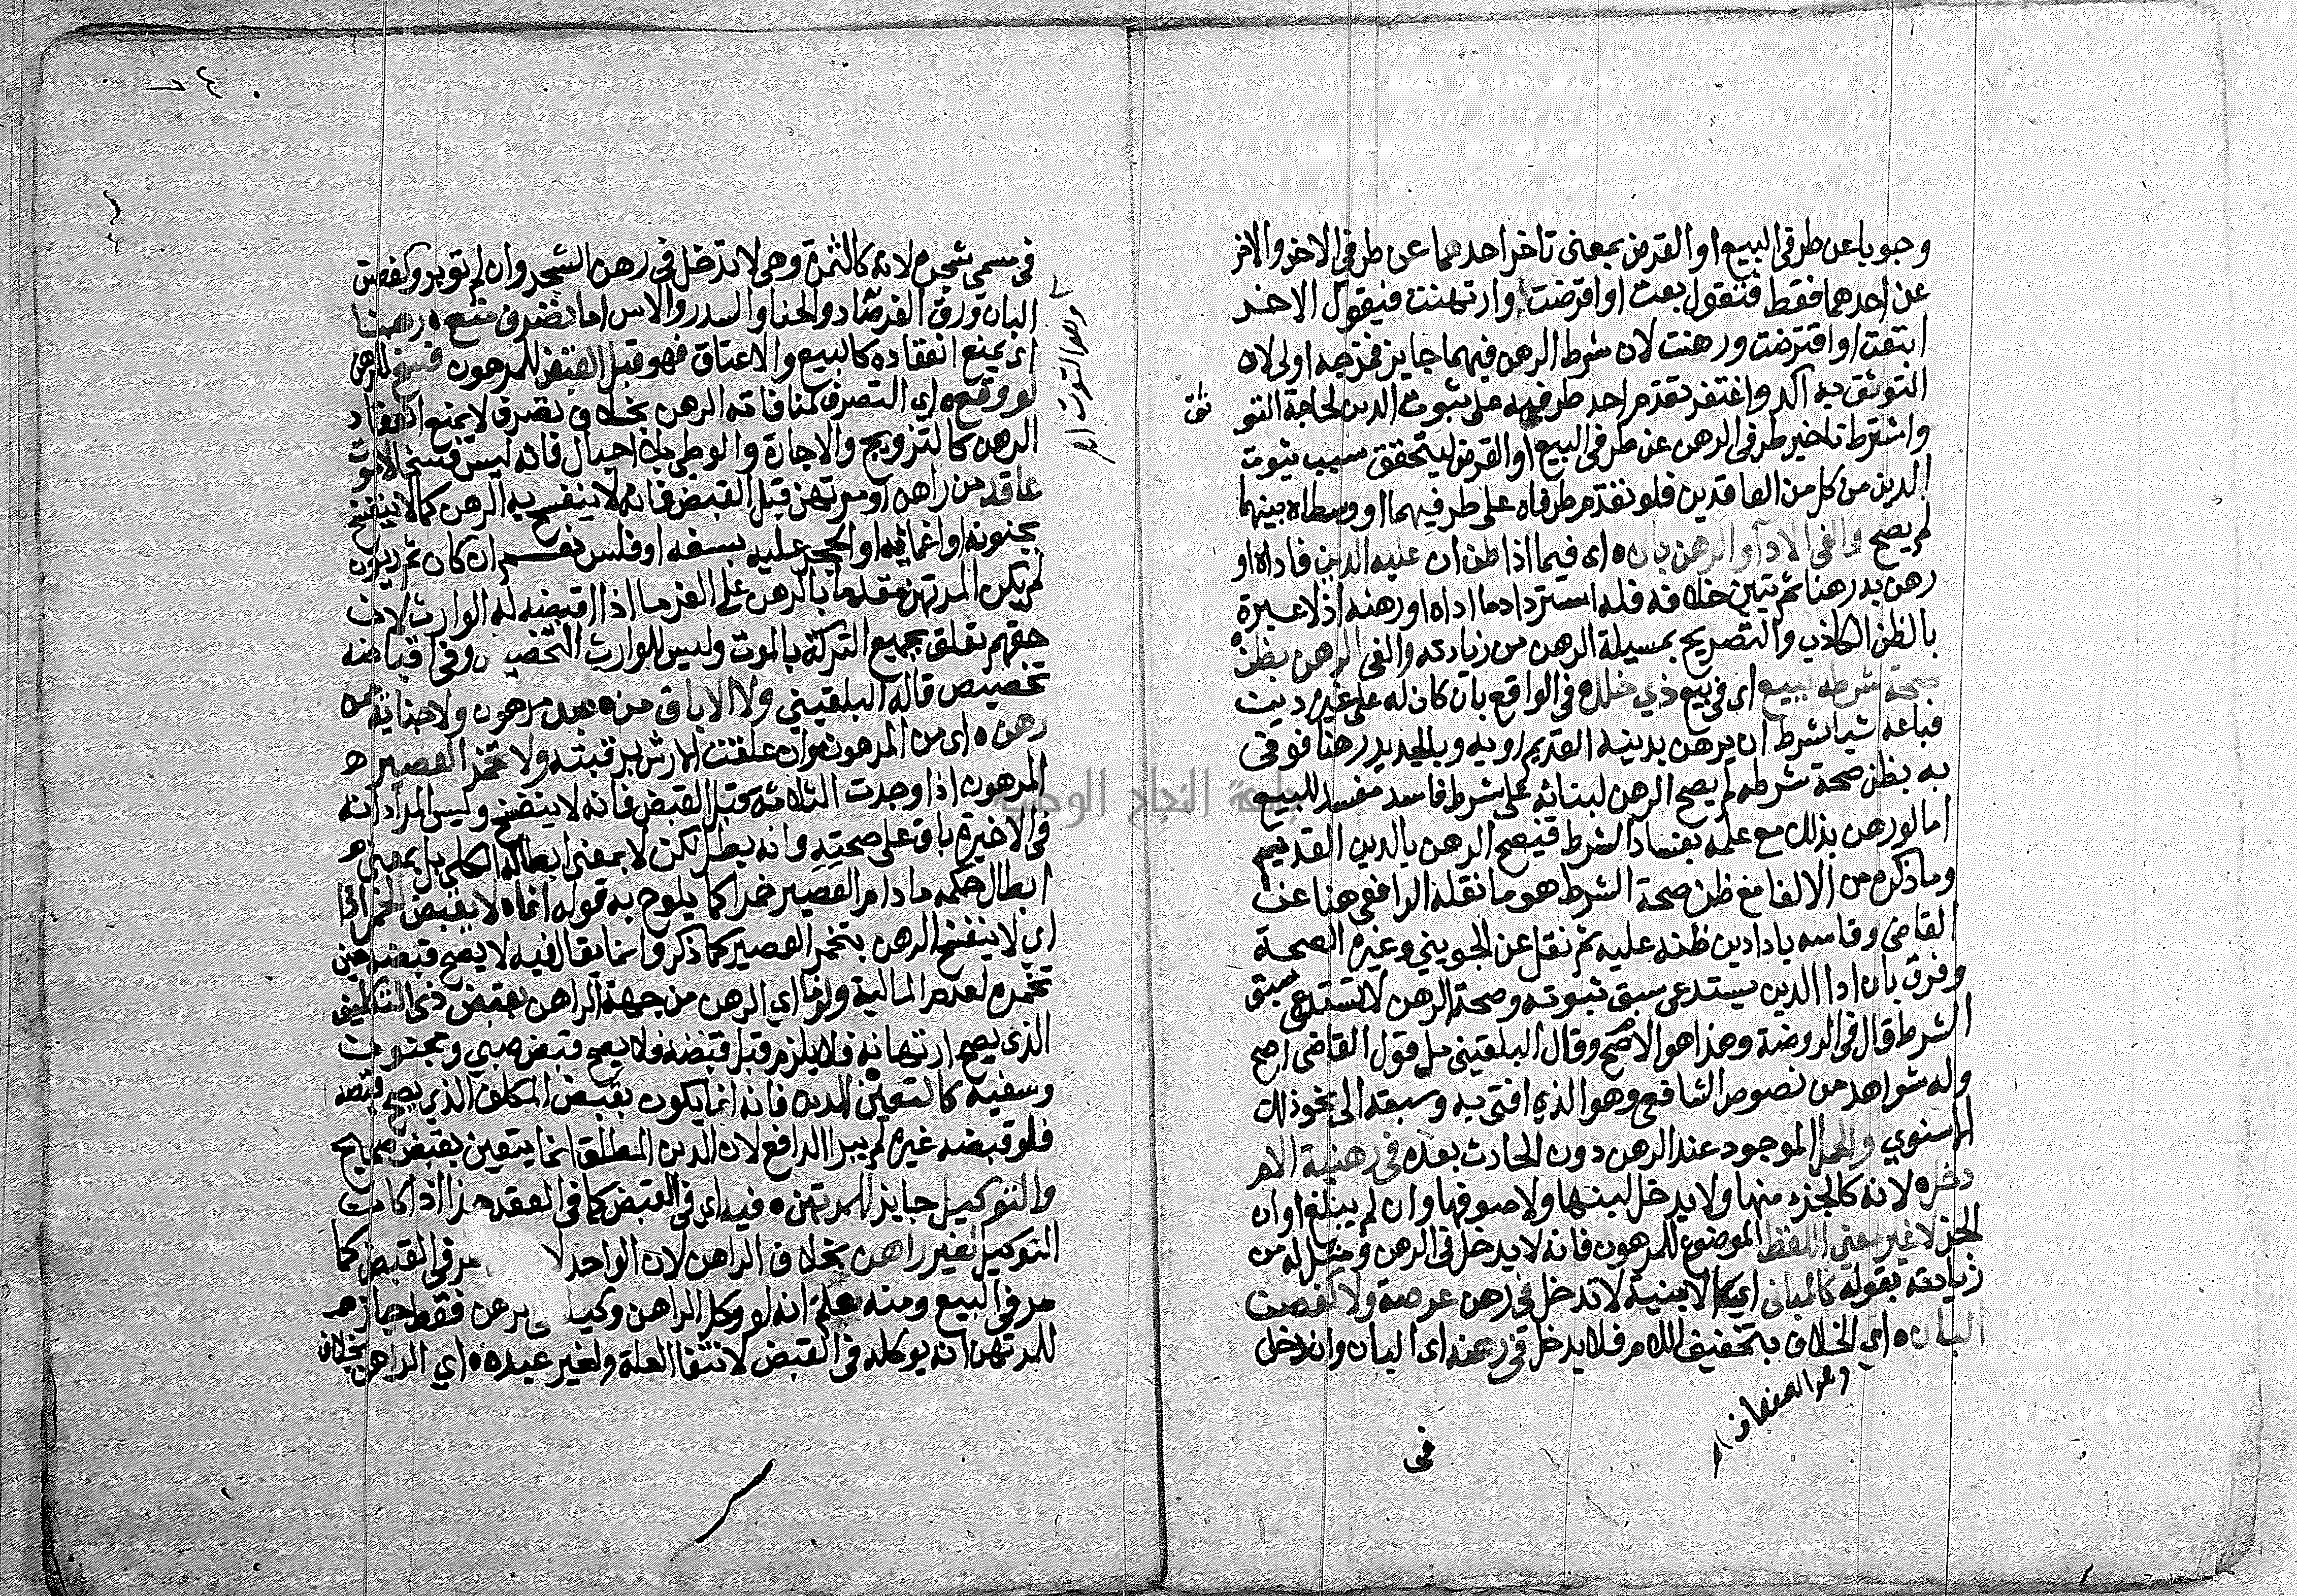 وجوبا عن طرفي البيع او القرض بمعنى تاخر احدهما عن طرفي الاخر والاخر
عن احدهما فقط فنقول بعت او اقرضت وارتهنت فيقول الاخر
ابتعت او اقترضت ورهنت لان شرط الرهن فيهما جايز فمزجه اولى لان
التوثق به اكد واغتفر تقدم احد طرفيه على ثبوت الدين لحاجة التو
ثق
واشترط تاخير طرفي الرهن عن طرفي البيع او القرض ليتحقق سبب ثبوت
الدين من كل من العاقدين فلو تقدم طرفاه على طرفيهما او وسطاه بينهما
لم يصح والغى الادآ والرهن بان اي فيما اذا ظن ان عليه الدين فاداه او
رهن به رهنا ثم تبين خلافه فله استرداد ما اداه او رهنه اذ لا عبرة
بالظن الكاذب والتصريح بمسيلة الرهن من زيادته والغى الرهن بظن
صحة شرطه ببيع اي في بيع ذي خلل في الواقع بان كان له على غيره دين
فباعه شيا بشرط ان يرهن بدينه القديم او به وبالجديد رهنا فوفى
به بظن صحة شرطه لم يصح الرهن لبنائه على شرط فاسد مفسد للبيع
اما لو رهن بذلك مع علمه بفساد الشرط فيصح الرهن بالدين القديم
وما ذكره من الالغا مع ظن صحة الشرط هو ما نقله الرافعي هنا عن
القاضي وقاسه بادا دين ظنه عليه ثم نقل عن الجويني وغيره الصحة
وفرق بان ادا الدين يستدعى سبق ثبوته وصحة الرهن لا تستدعى سبق
الشرط قال في الروضة وهذا هو الاصح وقال البلقيني بل قول القاضى اصح
وله شواهد من نصوص الشافعي وهو الذي افتى به وسبقه الى نحو ذلك
الاسنوي والحمل الموجود عند الرهن دون الحادث بعده في رهنية الام
دخله لانه كالجزء منها ولا يدخل لبنها ولا صوفها وان لم يبلغ اوان
الجز لا غير معنى اللفظ الموضوع للمرهون فانه لا يدخل في الرهن ومثل له من
زيادته بقوله كالمباني اي كالابنية لا تدخل في رهن عرصة ولا كغصن
البان اي الخلاف بتخفيف اللام فلا يدخل في رهنه اى البان وان دخل
وهو الصفصاف اه
في
في مسمى شجره لانه كالثمرة وهي لا تدخل في رهن الشجر وان لم توبر وكغصن
البان ورق الفرصاد والحنا والسدر والاس اما تصرف منع رهنا
وهو التوت اه
اي يمنع انعقاده كالبيع والاعتاق فهو قبل القبض للمرهون فسخ للرهن
لو وقع اي التصرف لمنافاته الرهن بخلاف تصرف لا يمنع انعقاد
الرهن كالتزويج والاجارة والوطي بلا احبال فانه ليس فسخا لا موت
عاقد من راهن او مرتهن قبل القبض فانه لا ينفسخ به الرهن كما لا ينفسخ
بجنونه او اغمائه او الحجر عليه بسفه او فلس نعم ان كان ثم ديون
لم يكن المرتهن مقدما بالرهن على الغرما اذا اقبضه له الوارث لان
حقهم تعلق بجميع التركة بالموت وليس للوارث التخصيص وفي اقباضه
تخصيص قاله البلقيني ولا الاباق من عبد مرهون ولا جناية من
رهن اي من المرهون وان علقت الارش برقبته ولا تخمر العصير
المرهون اذا وجدت الثلاثة قبل القبض فانه لا ينفسخ وليس المراد انه
في الاخيرة باق على صحته وانه يطل لكن لا بمعنى ابطاله الكلي بل بمعنى
ابطال حكمه ما دام العصير خمرا كما يلوح به قوله انما لا يقبض الخمر اذا
اي لا ينفسخ الرهن بتخمر العصير كما ذكر وانما يقال فيه لا يصح قبضه حين
تخمره لعدم المالية ولزما اي الرهن من جهة الراهن بقبض ذي التكليف
الذي يصح ارتهانه فلا يلزم قبل قبضه فلا يصح قبض صبي ومجنون
وسفيه كالتعين للدين فانه انما يكون بقبض المكلف الذي يصح قبضه
فلو قبضه غيره لم يبرا الدافع لان الدين المطلق انما يتعين بقبض صحيح
والتوكيل جايز للمرتهن فيه اي في القبض كما في العقد هذا اذا كان
التوكيل لغير راهن بخلاف الراهن لان الواحد لا في القبض كما
مر في البيع ومنه علم انه لو وكل الراهن وكيلا برهن فقط جاز
للمرتهن انه يوكله في القبض لانتفا العلة ولغير عبده اي الراهن بخلاف